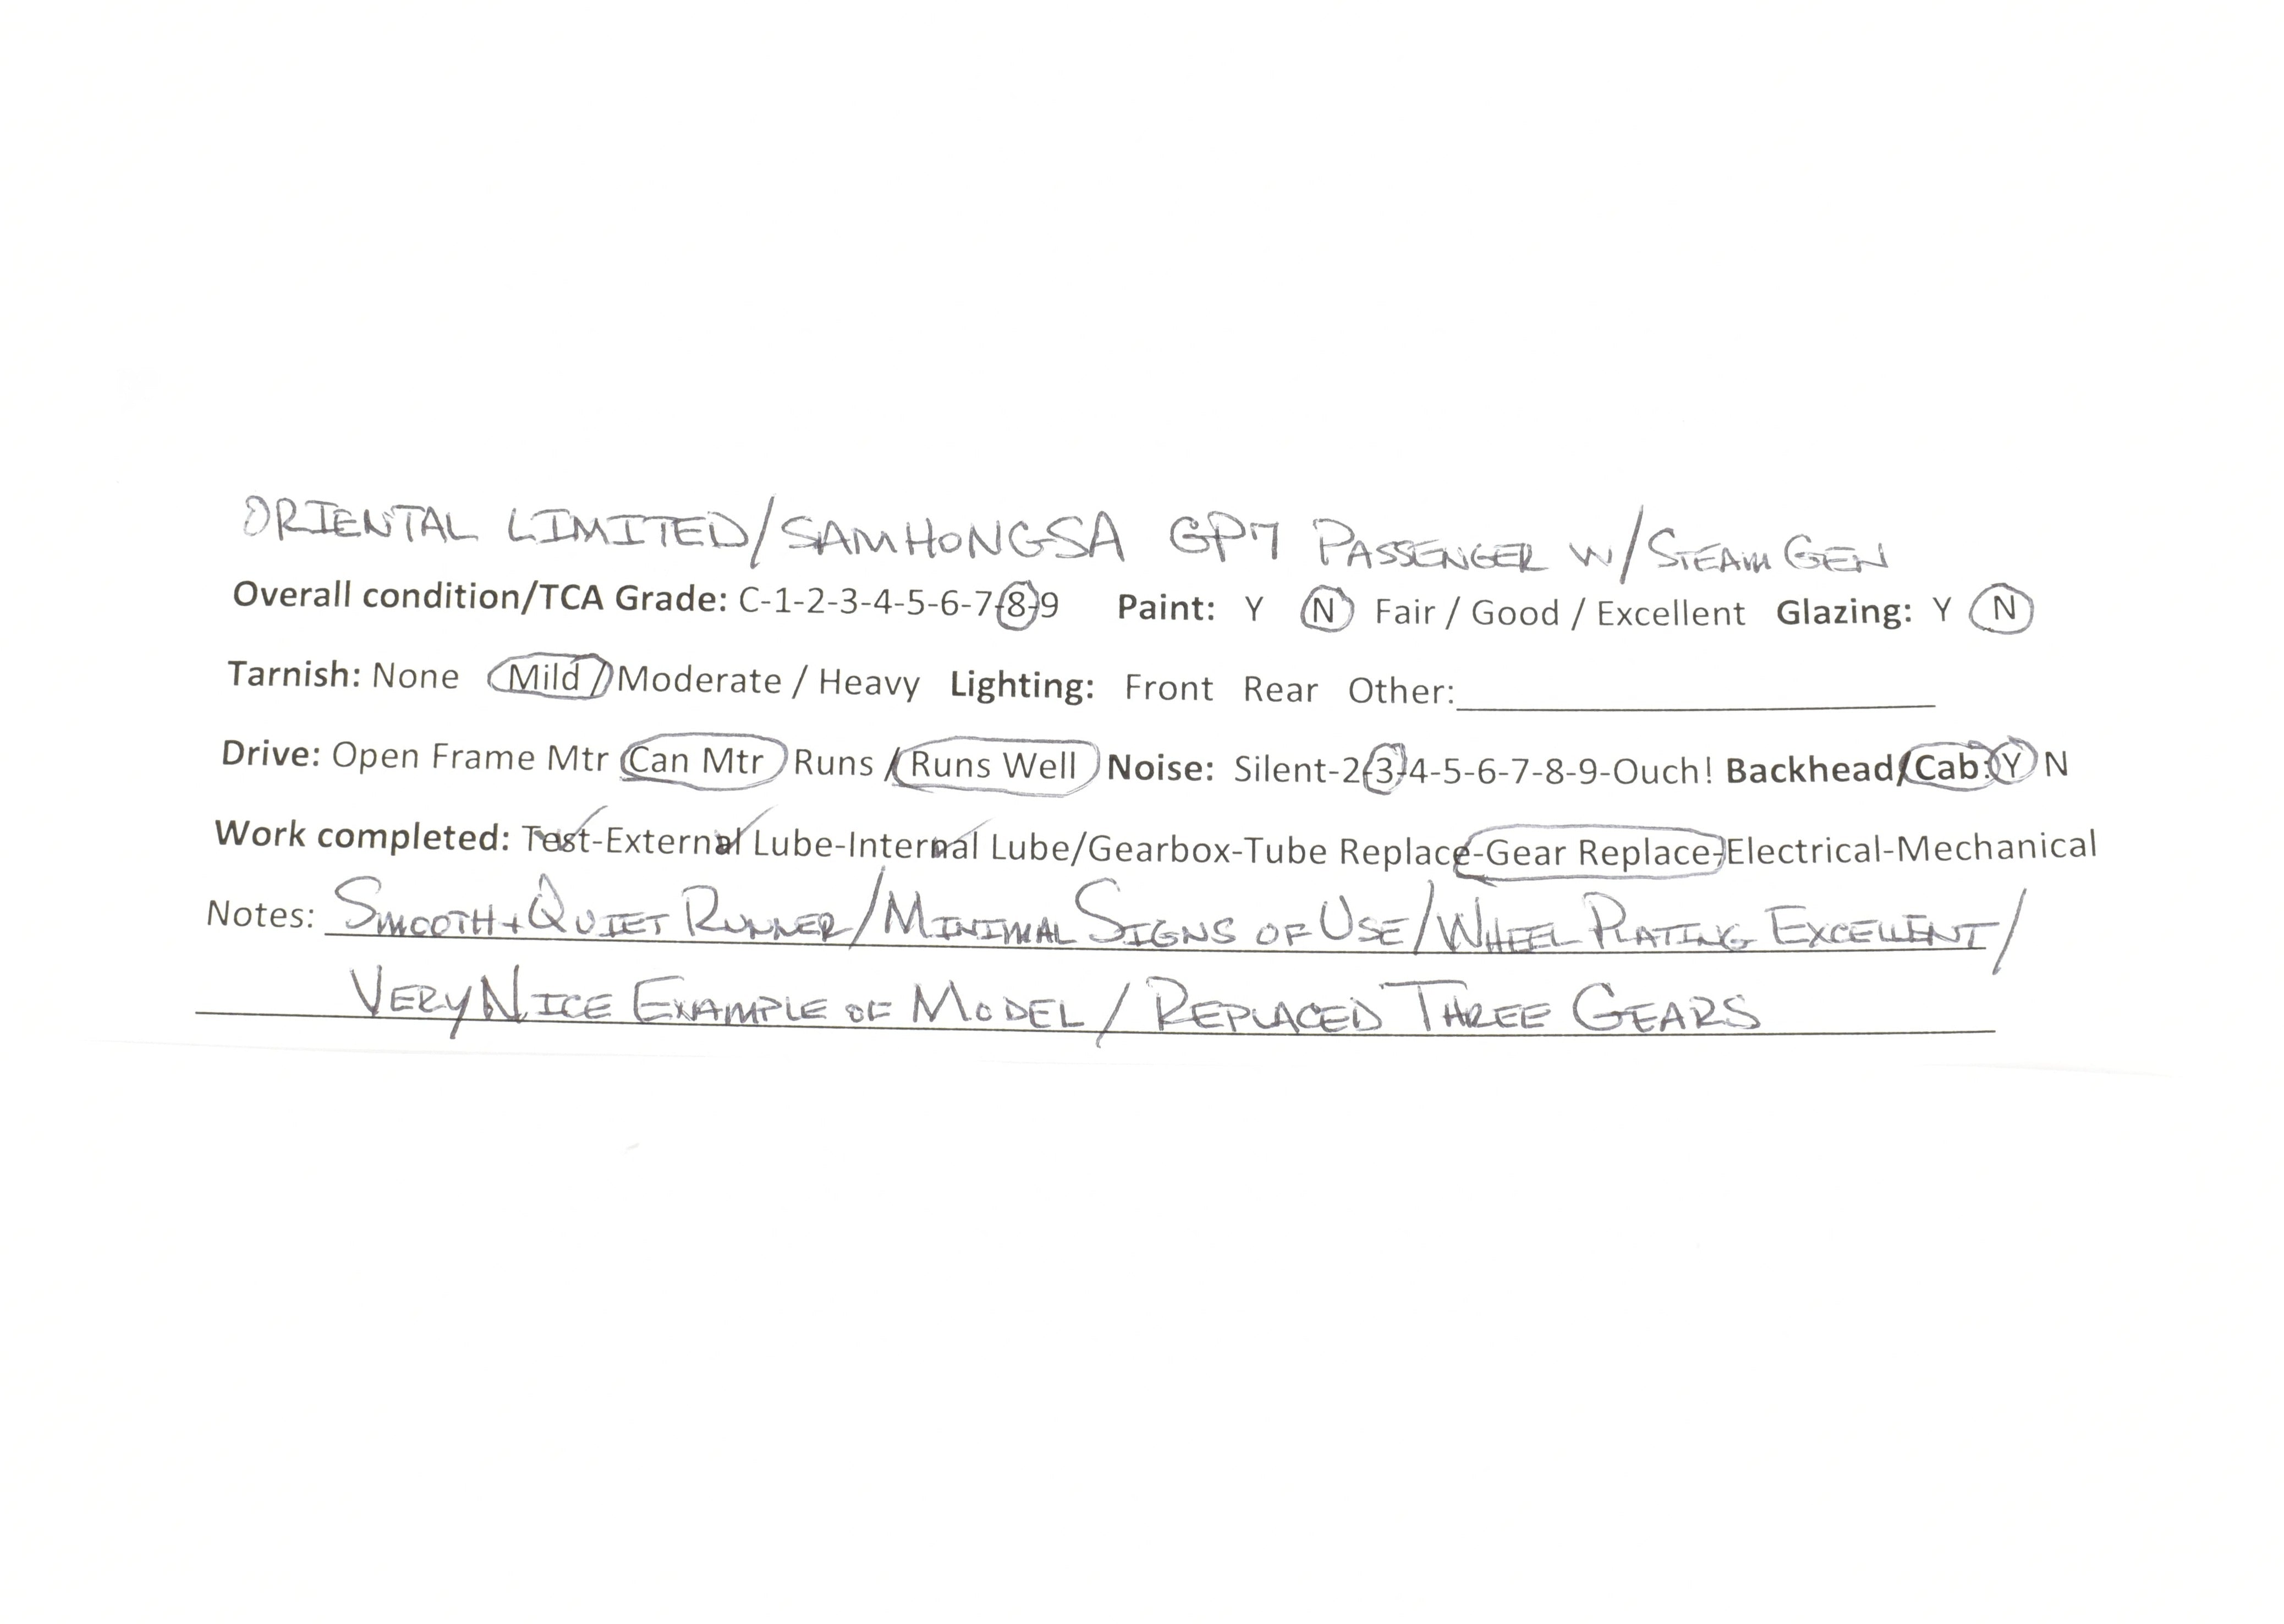 ORIENTAL LIMITED/SAMHONGSA GP7 PASSENGER W/STEAM GEN
Overall condition/TCA Grade: C-1-2-3-4-5-6-7-8-9 Paint: Y N Fair / Good / Excellent Glazing: Y N
Tarnish: None Mild / Moderate / Heavy Lighting: Front Rear Other:
Drive: Open Frame Mtr Can Mtr Runs / Runs Well Noise: Silent-2-3-4-5-6-7-8-9-Ouch! Backhead/Cab: Y N
Work completed: Test-External Lube-Internal Lube/Gearbox-Tube Replace-Gear Replace-Electrical-Mechanical
Notes: SMOOTH+QUIET RUNNER/MINIMAL SIGNS OF USE/WHEEL PLATING EXCELLENT/
VERY NICE EXAMPLE OF MODEL/REPLACED THREE GEARS